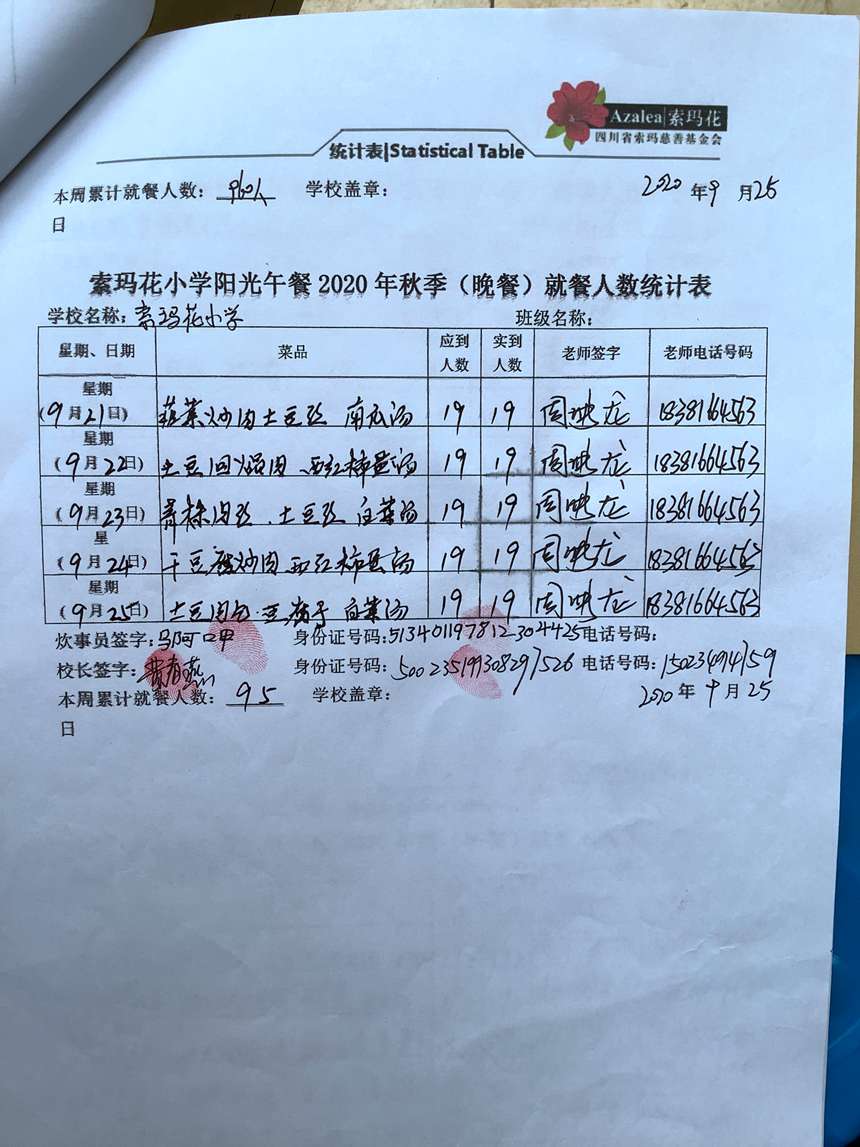 Azalea 索玛花
四川省索玛慈善基金会
统计表|Statistical Table
本周累计就餐人数： 960人 学校盖章： 2020 年9 月25
日
索玛花小学阳光午餐 2020 年秋季（晚餐）就餐人数统计表
学校名称：索玛花小学 班级名称：
星期、日期 菜品 应到人数 实到人数 老师签字 老师电话号码
星期（9月21日） 韮菜炒肉 土豆丝 南瓜汤 19 19 周映龙 18381664563
星期（9月22日） 土豆回锅肉 西红柿蛋汤 19 19 周映龙 18381664563
星期（9月23日） 青椒肉丝 . 土豆丝 白菜汤 19 19 周映龙 18381664563
星（9月24日） 干豆 炒肉 西红柿蛋汤 19 19 周映龙 18381664563
星期（9月25日） 土豆 豆腐 白菜汤 19 19 周映龙 18381664563
炊事员签字：马阿 身份证号码：513401197812304425 电话号码：
校长签字： 身份证号码：500235199308297526 电话号码：15023494759
本周累计就餐人数： 95 学校盖章： 2020 年 9 月 25
日